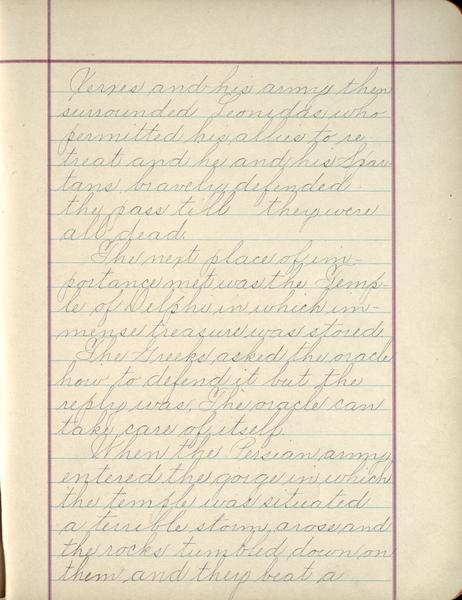 Xerxes and his army then
surrounded Leonidas who
permitted his allies to re-
treat and he and his Spar-
tans bravely defended
the pass till they were
all dead.
The next place of im-
portance met was the Temp-
le of Delphi in which im-
mense treasure was stored
The Greeks asked the oracle
how to defend it but the
reply was, The oracle can
take care of itself
When the Persian army
entered the gorge in which
the temple was situated
a terrible storm arose and
the rocks tumbled down on
them and they beat a